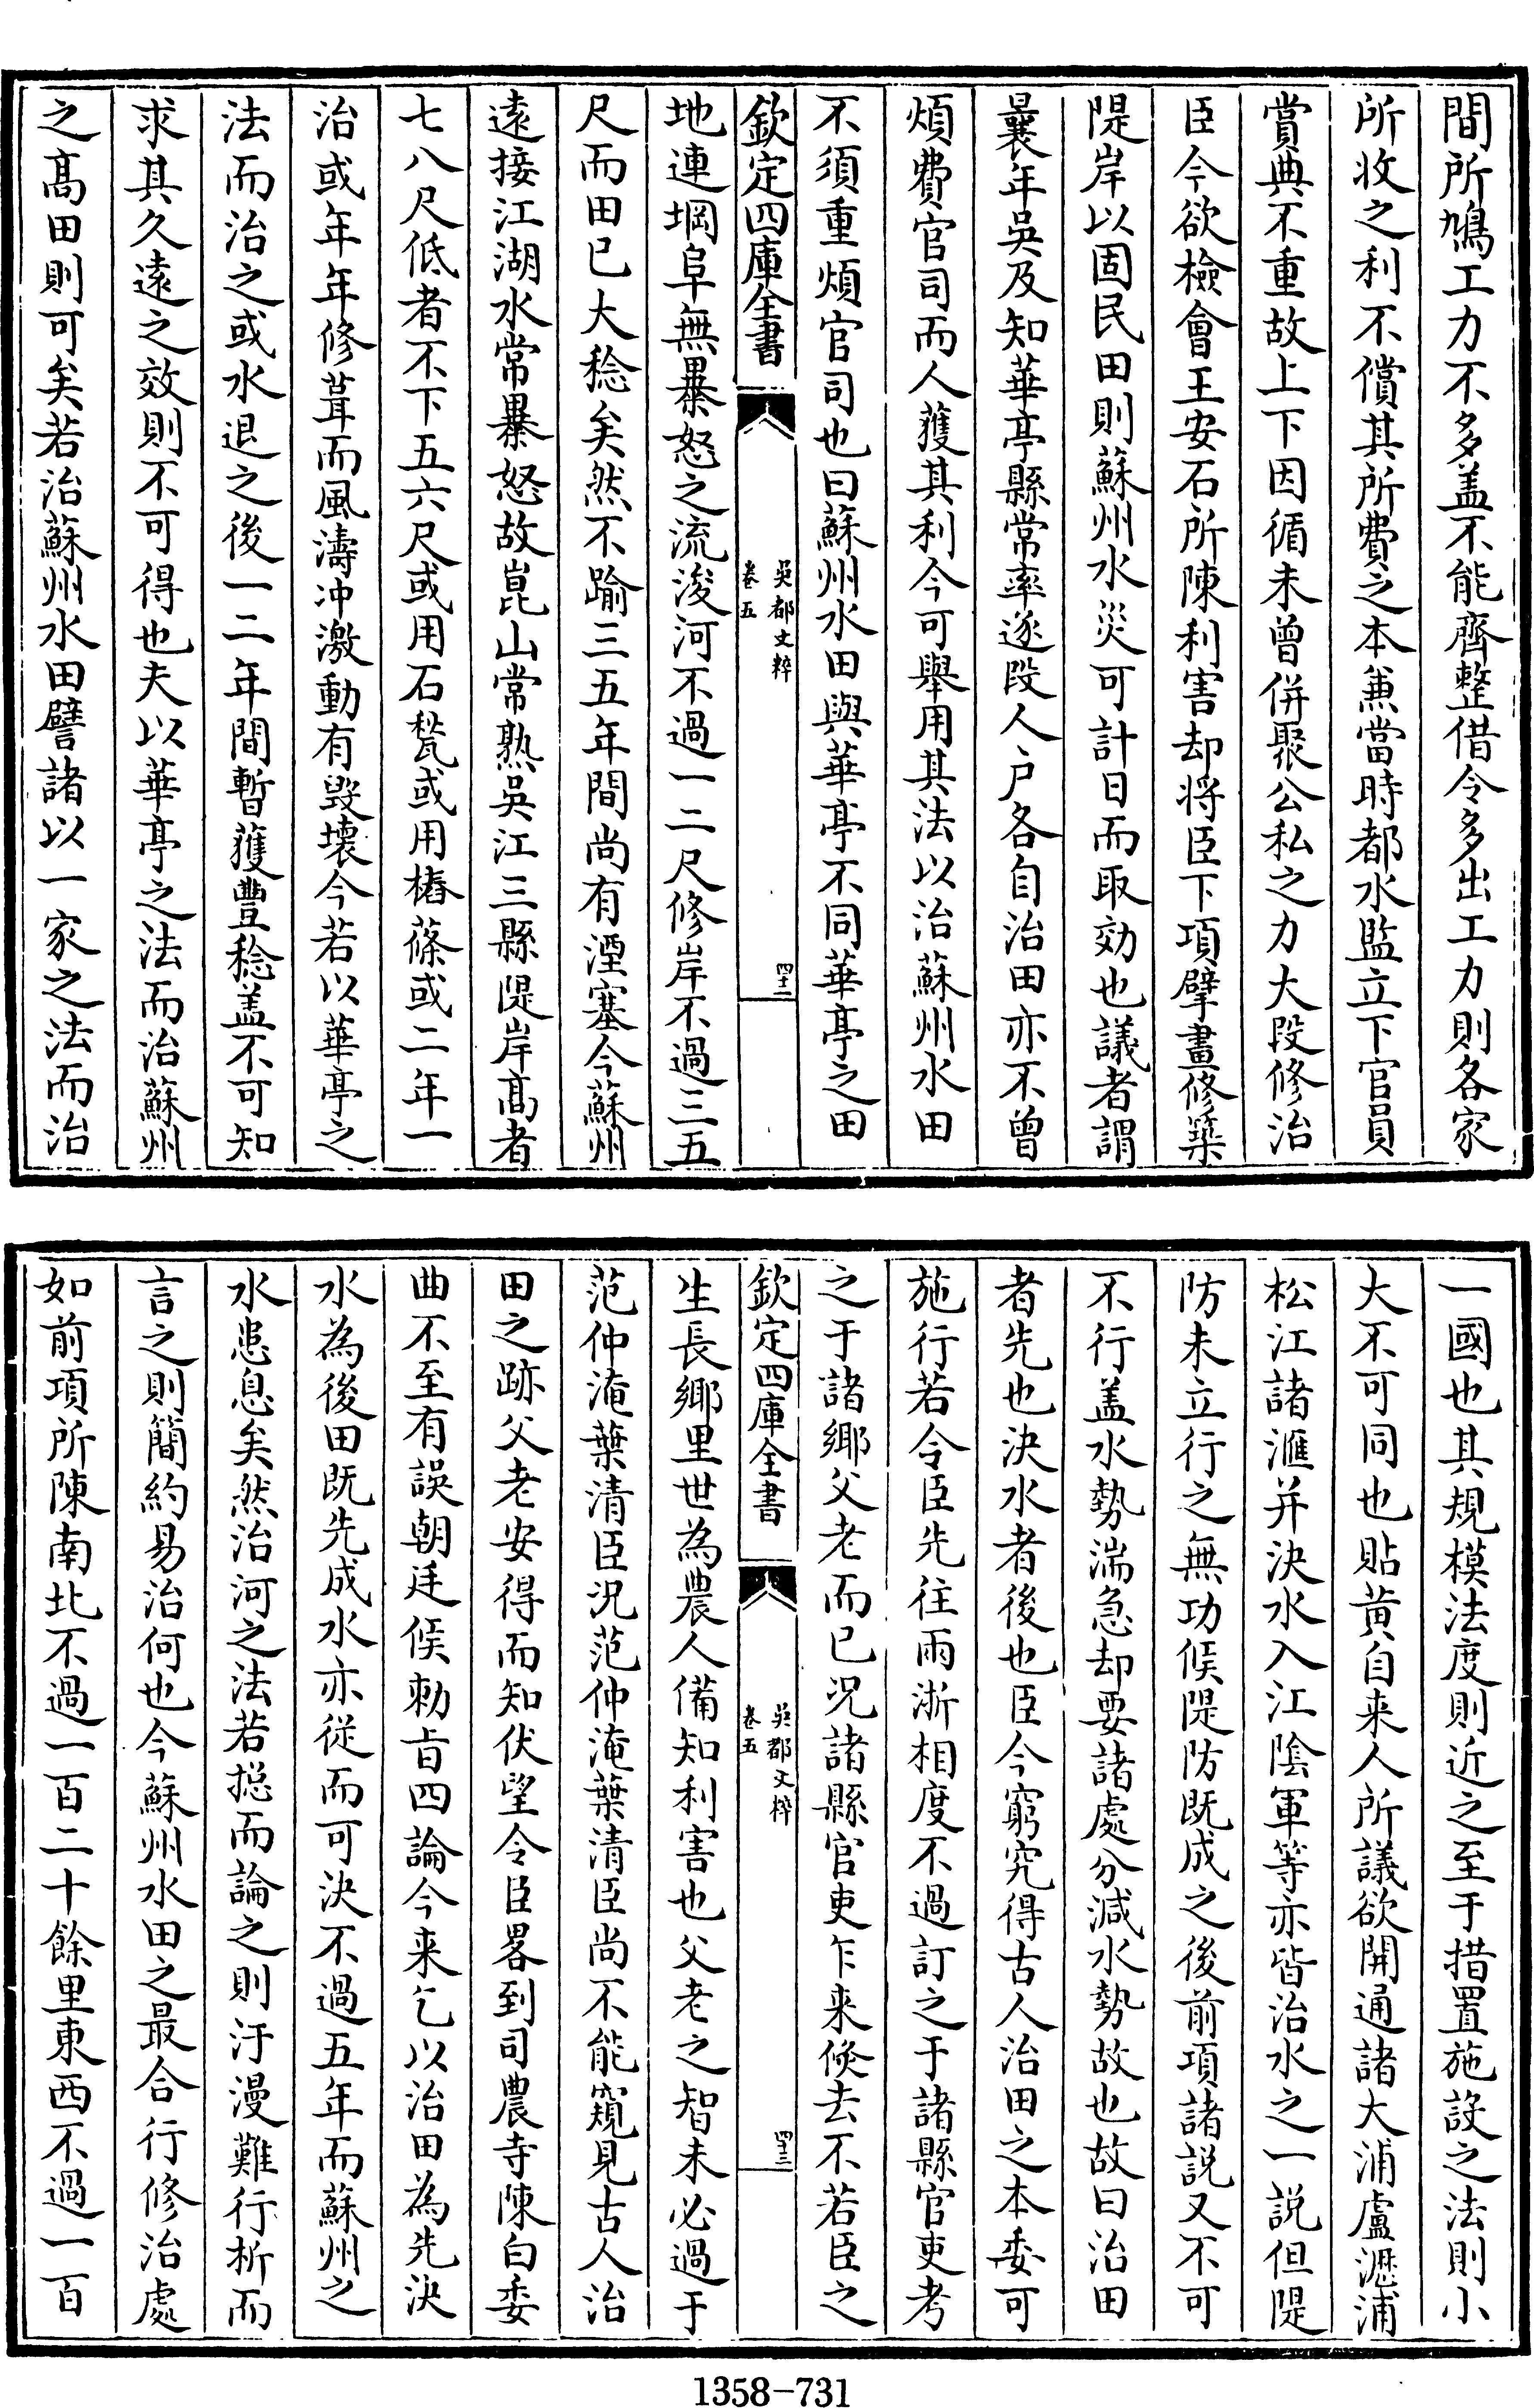 間所鳩工力不多盖不能齊整借令多出工力則各家
所收之利不償其所費之本兼當時都水監立下官員
賞典不重故上下因循未曾併聚公私之力大段修治
臣今欲檢會王安石所陳利害却将臣下項擘畫修築
隄岸以固民田則蘇州水災可計日而取効也議者謂
曩年吳及知華亭縣常率逐段人户各自治田亦不曾
煩費官司而人獲其利今可舉用其法以治蘇州水田
不須重煩官司也曰蘇州水田與華亭不同華亭之田
欽定四庫全書
吳都文粹
卷五
四十二
地連堈阜無暴怒之流浚河不過一二尺修岸不過三五
尺而田已大稔矣然不踰三五年間尚有湮塞今蘇州
遠接江湖水常暴怒故崑山常熟吳江三縣隄岸髙者
七八尺低者不下五六尺或用石甃或用樁篠或二年一
治或年年修葺而風濤冲激動有毀壞今若以華亭之
法而治之或水退之後一二年間暫獲豐稔盖不可知
求其久遠之效則不可得也夫以華亭之法而治蘇州
之髙田則可矣若治蘇州水田譬諸以一家之法而治
一國也其規模法度則近之至于措置施設之法則小
大不可同也貼黄自来人所議欲開通諸大浦盧瀝浦
松江諸滙并決水入江陰軍等亦皆治水之一説但隄
防未立行之無功候隄防既成之後前項諸説又不可
不行盖水勢湍急却要諸處分減水勢故也故曰治田
者先也決水者後也臣今窮究得古人治田之本委可
施行若令臣先往兩浙相度不過訂之于諸縣官吏考
之于諸鄉父老而已况諸縣官吏乍来倐去不若臣之
欽定四庫全書
吳郡文粹
卷五
四十三
生長鄉里世為農人備知利害也父老之智未必過于
范仲淹葉清臣况范仲淹葉清臣尚不能窺見古人治
田之跡父老安得而知伏望令臣畧到司農寺陳白委
曲不至有誤朝廷候勅旨四論今来乞以治田為先決
水為後田既先成水亦從而可決不過五年而蘇州之
水患息矣然治河之法若捴而論之則汙漫難行析而
言之則簡約易治何也今蘇州水田之最合行修治處
如前項所陳南北不過一百二十餘里東西不過一百
1358-731